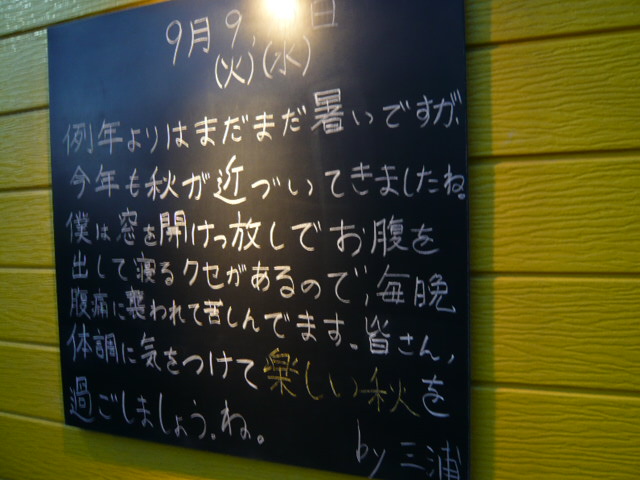 9月9 日
(火)(水)
例年よりはまだまだ暑いですが、
今年も秋が近づいてきましたね。
僕は窓を開けっ放しでお腹を
出して寝るクセがあるので、毎晩
腹痛に襲われて苦しんでます。皆さん、
体調に気をつけて楽しい秋を
過ごしましょう。ね。
by 三浦